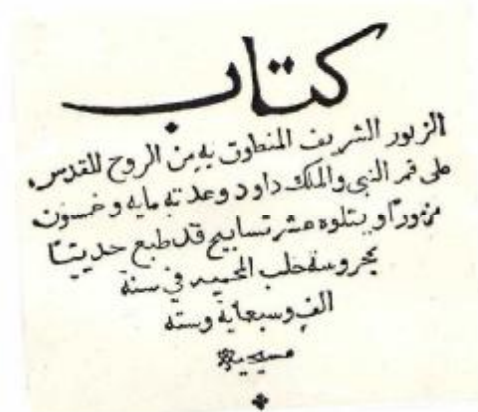 كتاب
الزبور الشريف المنطوق به من الروح للقدس،
على فم النبي والملك داود وعدته مايه وخمسون
مزمورًا ويتلوه عشر تسابيح قد طبع حديثًا
بمحروسة حلب المحميه في سنة
الف وسبعماية وسته
مسيحيه